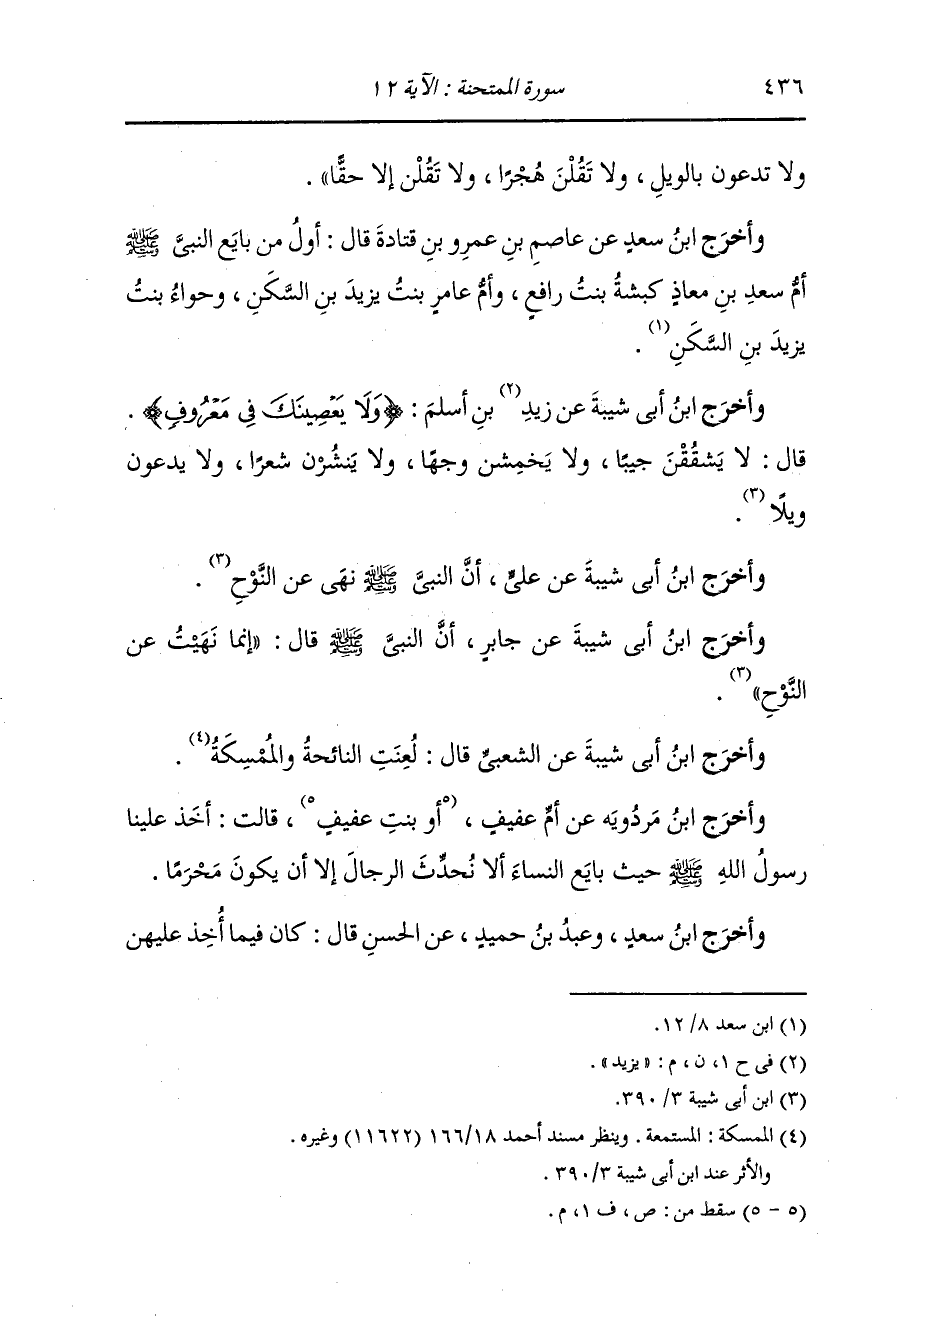 ٤٣٦ سورة الممتحنة : الآية ١٢
ولا تدعون بالويلِ ، ولا تَقُلْنَ هُجْرًا ، ولا تَقُلْن إلا حقًّا» .
وأخرَج ابنُ سعدٍ عن عاصمِ بنِ عمرِو بنِ قتادةَ قال : أولُ من بايَع النبيَّ ﷺ
أمُّ سعدِ بنِ معاذٍ كبشةُ بنتُ رافعٍ ، وأمُّ عامرٍ بنتُ يزيدَ بنِ السَّكَنِ ، وحواءُ بنتُ
يزيدَ بنِ السَّكَنِ(١) .
وأخرَج ابنُ أبى شيبةَ عن زيدِ(٢) بنِ أسلمَ : ﴿وَلَا يَعْصِينَكَ فِى مَعْرُوفٍ﴾ .
قال : لا يَشقُقْنَ جيبًا ، ولا يَخمِشن وجهًا ، ولا يَنشُرْن شعرًا ، ولا يدعون
ويلًا(٣) .
وأخرَج ابنُ أبى شيبةَ عن علىٍّ ، أنَّ النبىَّ ﷺ نهَى عن النَّوْحِ(٣) .
وأخرَج ابنُ أبى شيبةَ عن جابرٍ ، أنَّ النبىَّ ﷺ قال : «إنما نَهَيْتُ عن
النَّوْحِ»(٣) .
وأخرَج ابنُ أبى شيبةَ عن الشعبىِّ قال : لُعِنَتِ النائحةُ والمُمْسِكَةُ(٤) .
وأخرَج ابنُ مَردُويَه عن أمِّ عفيفٍ ، (٥أو بنتِ عفيفٍ٥) ، قالت : أخَذ علينا
رسولُ اللهِ ﷺ حيث بايَع النساءَ ألا نُحدِّثَ الرجالَ إلا أن يكونَ مَحْرَمًا .
وأخرَج ابنُ سعدٍ ، وعبدُ بنُ حميدٍ ، عن الحسنِ قال : كان فيما أُخِذ عليهن
(١) ابن سعد ٨/ ١٢.
(٢) فى ح ١، ن ، م : «يزيد» .
(٣) ابن أبى شيبة ٣/ ٣٩٠.
(٤) الممسكة : المستمعة . وينظر مسند أحمد ١٨/ ١٦٦ (١١٦٢٢) وغيره .
والأثر عند ابن أبى شيبة ٣/ ٣٩٠ .
(٥ - ٥) سقط من : ص ، ف ١، م .